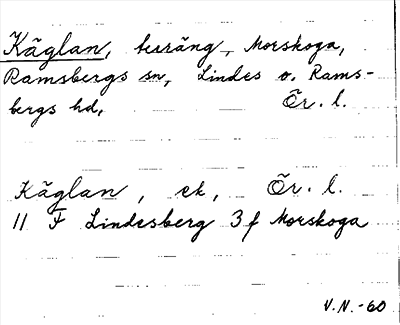 Käglan, terräng, Morskoga,
Ramsbergs sn, Lindes o. Rams-
bergs hd, Ör. l.
Käglan, ek, Ör. l.
11 F Lindesberg 3 f Morskoga
V.N.-60